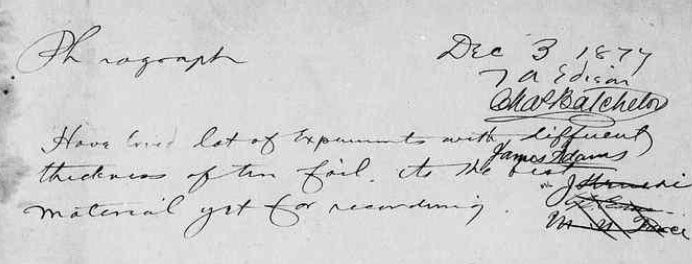 Phonograph
Dec 3 1877
T A Edison
Chas Batchelor
Have tried lot of Expements with diffuent
James Adams
thickness of tin foil. its the best
material yet for recording.